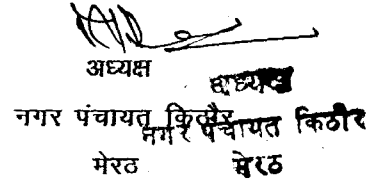 अध्यक्ष
अध्यक्ष
नगर पंचायत किठौर
नगर पंचायत किठौर
मेरठ
मेरठ